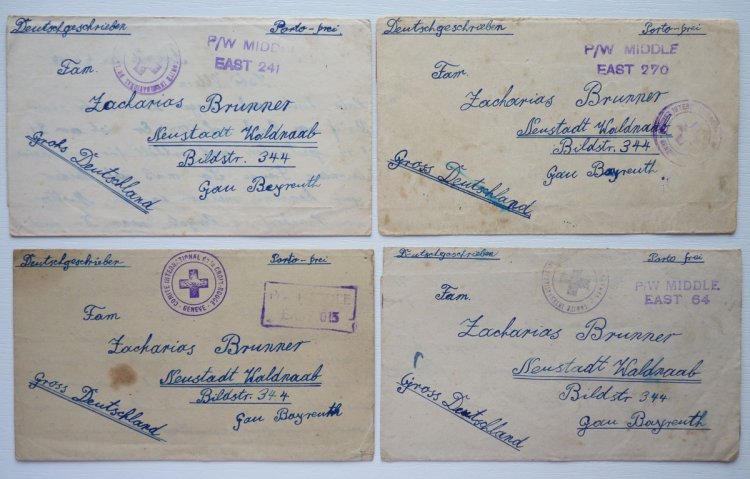 Deutschgeschrieben Porto-frei
P/W MIDDLE
EAST 241
Fam.
Zacharias Brunner
Neustadt Waldnaab
Bildstr. 344
Gau Bayreuth
Groß Deutschland
Deutschgeschrieben Porto-frei
P/W MIDDLE
EAST 270
Fam.
Zacharias Brunner
Neustadt Waldnaab
Bildstr. 344
Gau Bayreuth
Gross Deutschland
Deutschgeschrieben Porto-frei
COMITÉ INTERNATIONAL DE LA CROIX-ROUGE
GENÈVE
P/W MIDDLE
Fam
Zacharias Brunner
Neustadt Waldnaab
Bildstr. 344
Gau Bayreuth
Gross Deutschland
Deutschgeschrieben Porto frei
P/W MIDDLE
EAST 64
Fam.
Zacharias Brunner
Neustadt Waldnaab
Bildstr 344
Gau Bayreuth
Gross Deutschland